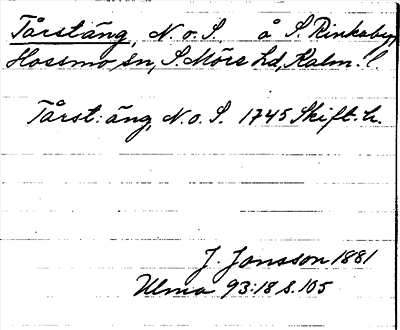 Tårstäng, N. o. S. å S. Rinkaby,
Hossmo sn, S. Möre hd, Kalm. l.
Tårst: äng, N. o. S. 1745 Skift. h.
J. Jonsson 1881
Ulma 93:18 s. 105